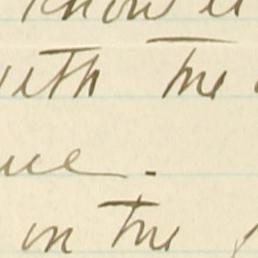 know it
with the
ue.
on the